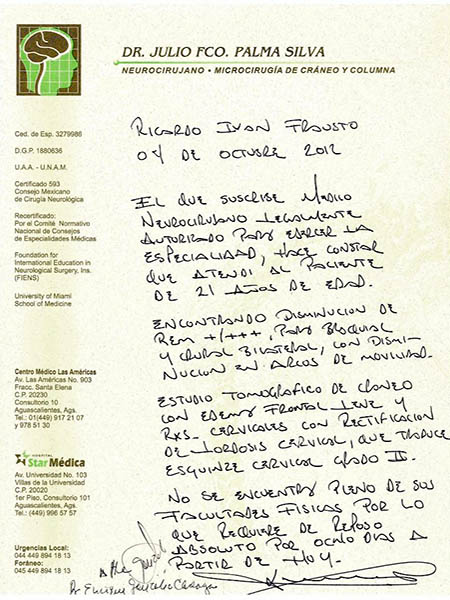 DR. JULIO FCO. PALMA SILVA
NEUROCIRUJANO • MICROCIRUGÍA DE CRÁNEO Y COLUMNA
Ced. de Esp. 3279986
D.G.P. 1880636
U.A.A. - U.N.A.M.
Certificado 593
Consejo Mexicano
de Cirugía Neurológica
Recertificado:
Por el Comité Normativo
Nacional de Consejos
de Especialidades Médicas
Foundation for
International Education in
Neurological Surgery, Ins.
(FIENS)
University of Miami
School of Medicine
Centro Médico Las Américas
Av. Las Américas No. 903
Fracc. Santa Elena
C.P. 20230
Consultorio 10
Aguascalientes, Ags.
Tel.: 01(449) 917 21 07
y 978 51 30
HOSPITAL
StarMédica
Av. Universidad No. 103
Villas de la Universidad
C.P. 20020
1er Piso, Consultorio 101
Aguascalientes, Ags.
Tel.: (449) 996 57 57
Urgencias Local:
044 449 894 18 13
Foráneo:
045 449 894 18 13
RICARDO IVAN FRAUSTO
04 DE OCTUBRE 2012
EL QUE SUSCRIBE MEDICO
NEUROCIRUJANO LEGALMENTE
AUTORIZADO PARA EJERCER LA
ESPECIALIDAD, HACE CONSTAR
QUE ATENDI AL PACIENTE
DE 21 AÑOS DE EDAD.
ENCONTRANDO DISMINUCION DE
REM +/+++, PARA BRAQUIAL
Y CRURAL BILATERAL, CON DISMI-
NUCION EN ARCOS DE MOVILIDAD.
ESTUDIO TOMOGRAFICO DE CRANEO
CON EDEMA FRONTAL LEVE Y
RXS. CERVICALES CON RECTIFICACION
DE LORDOSIS CERVICAL, QUE TRADUCE
ESGUINCE CERVICAL GRADO II.
NO SE ENCUENTRA PLENO DE SUS
FACULTADES FISICAS POR LO
QUE REQUIERE DE REPOSO
ABSOLUTO POR OCHO DIAS A
PARTIR DE HOY.
Dr Enrique